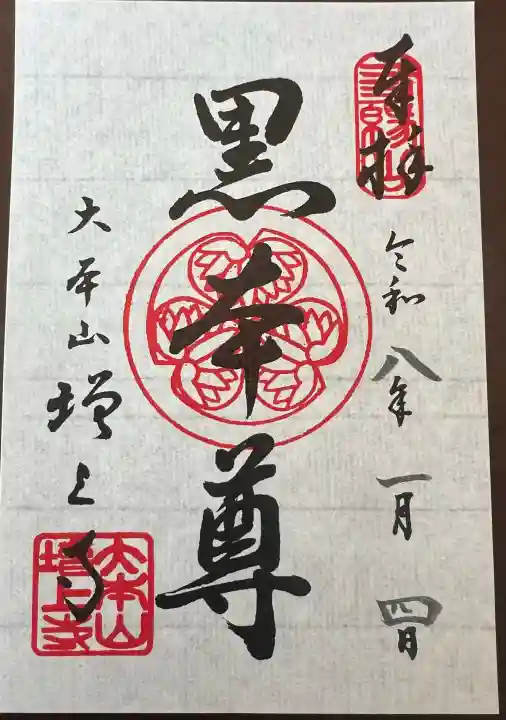 奉拝
三縁山
令和八年一月四日
黒本尊
大本山増上寺
大本山
増上寺